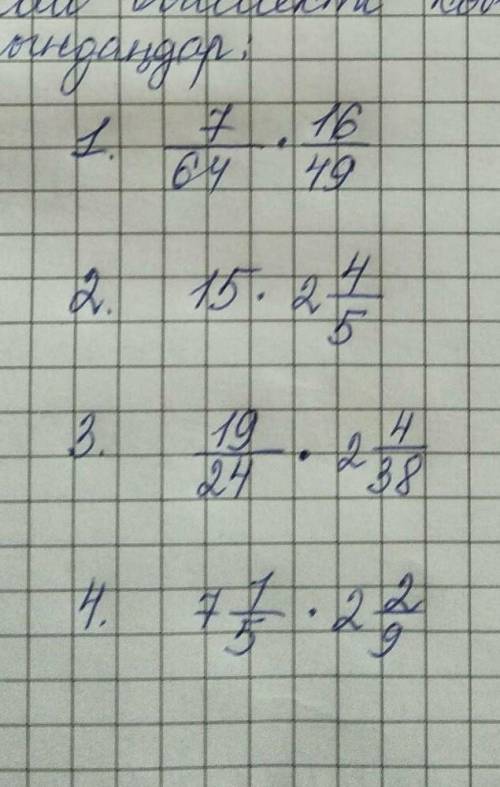 ындаңдар:
1. 7/64 · 16/49
2. 15 · 2 4/5
3. 19/24 · 2 4/38
4. 7 1/5 · 2 2/9